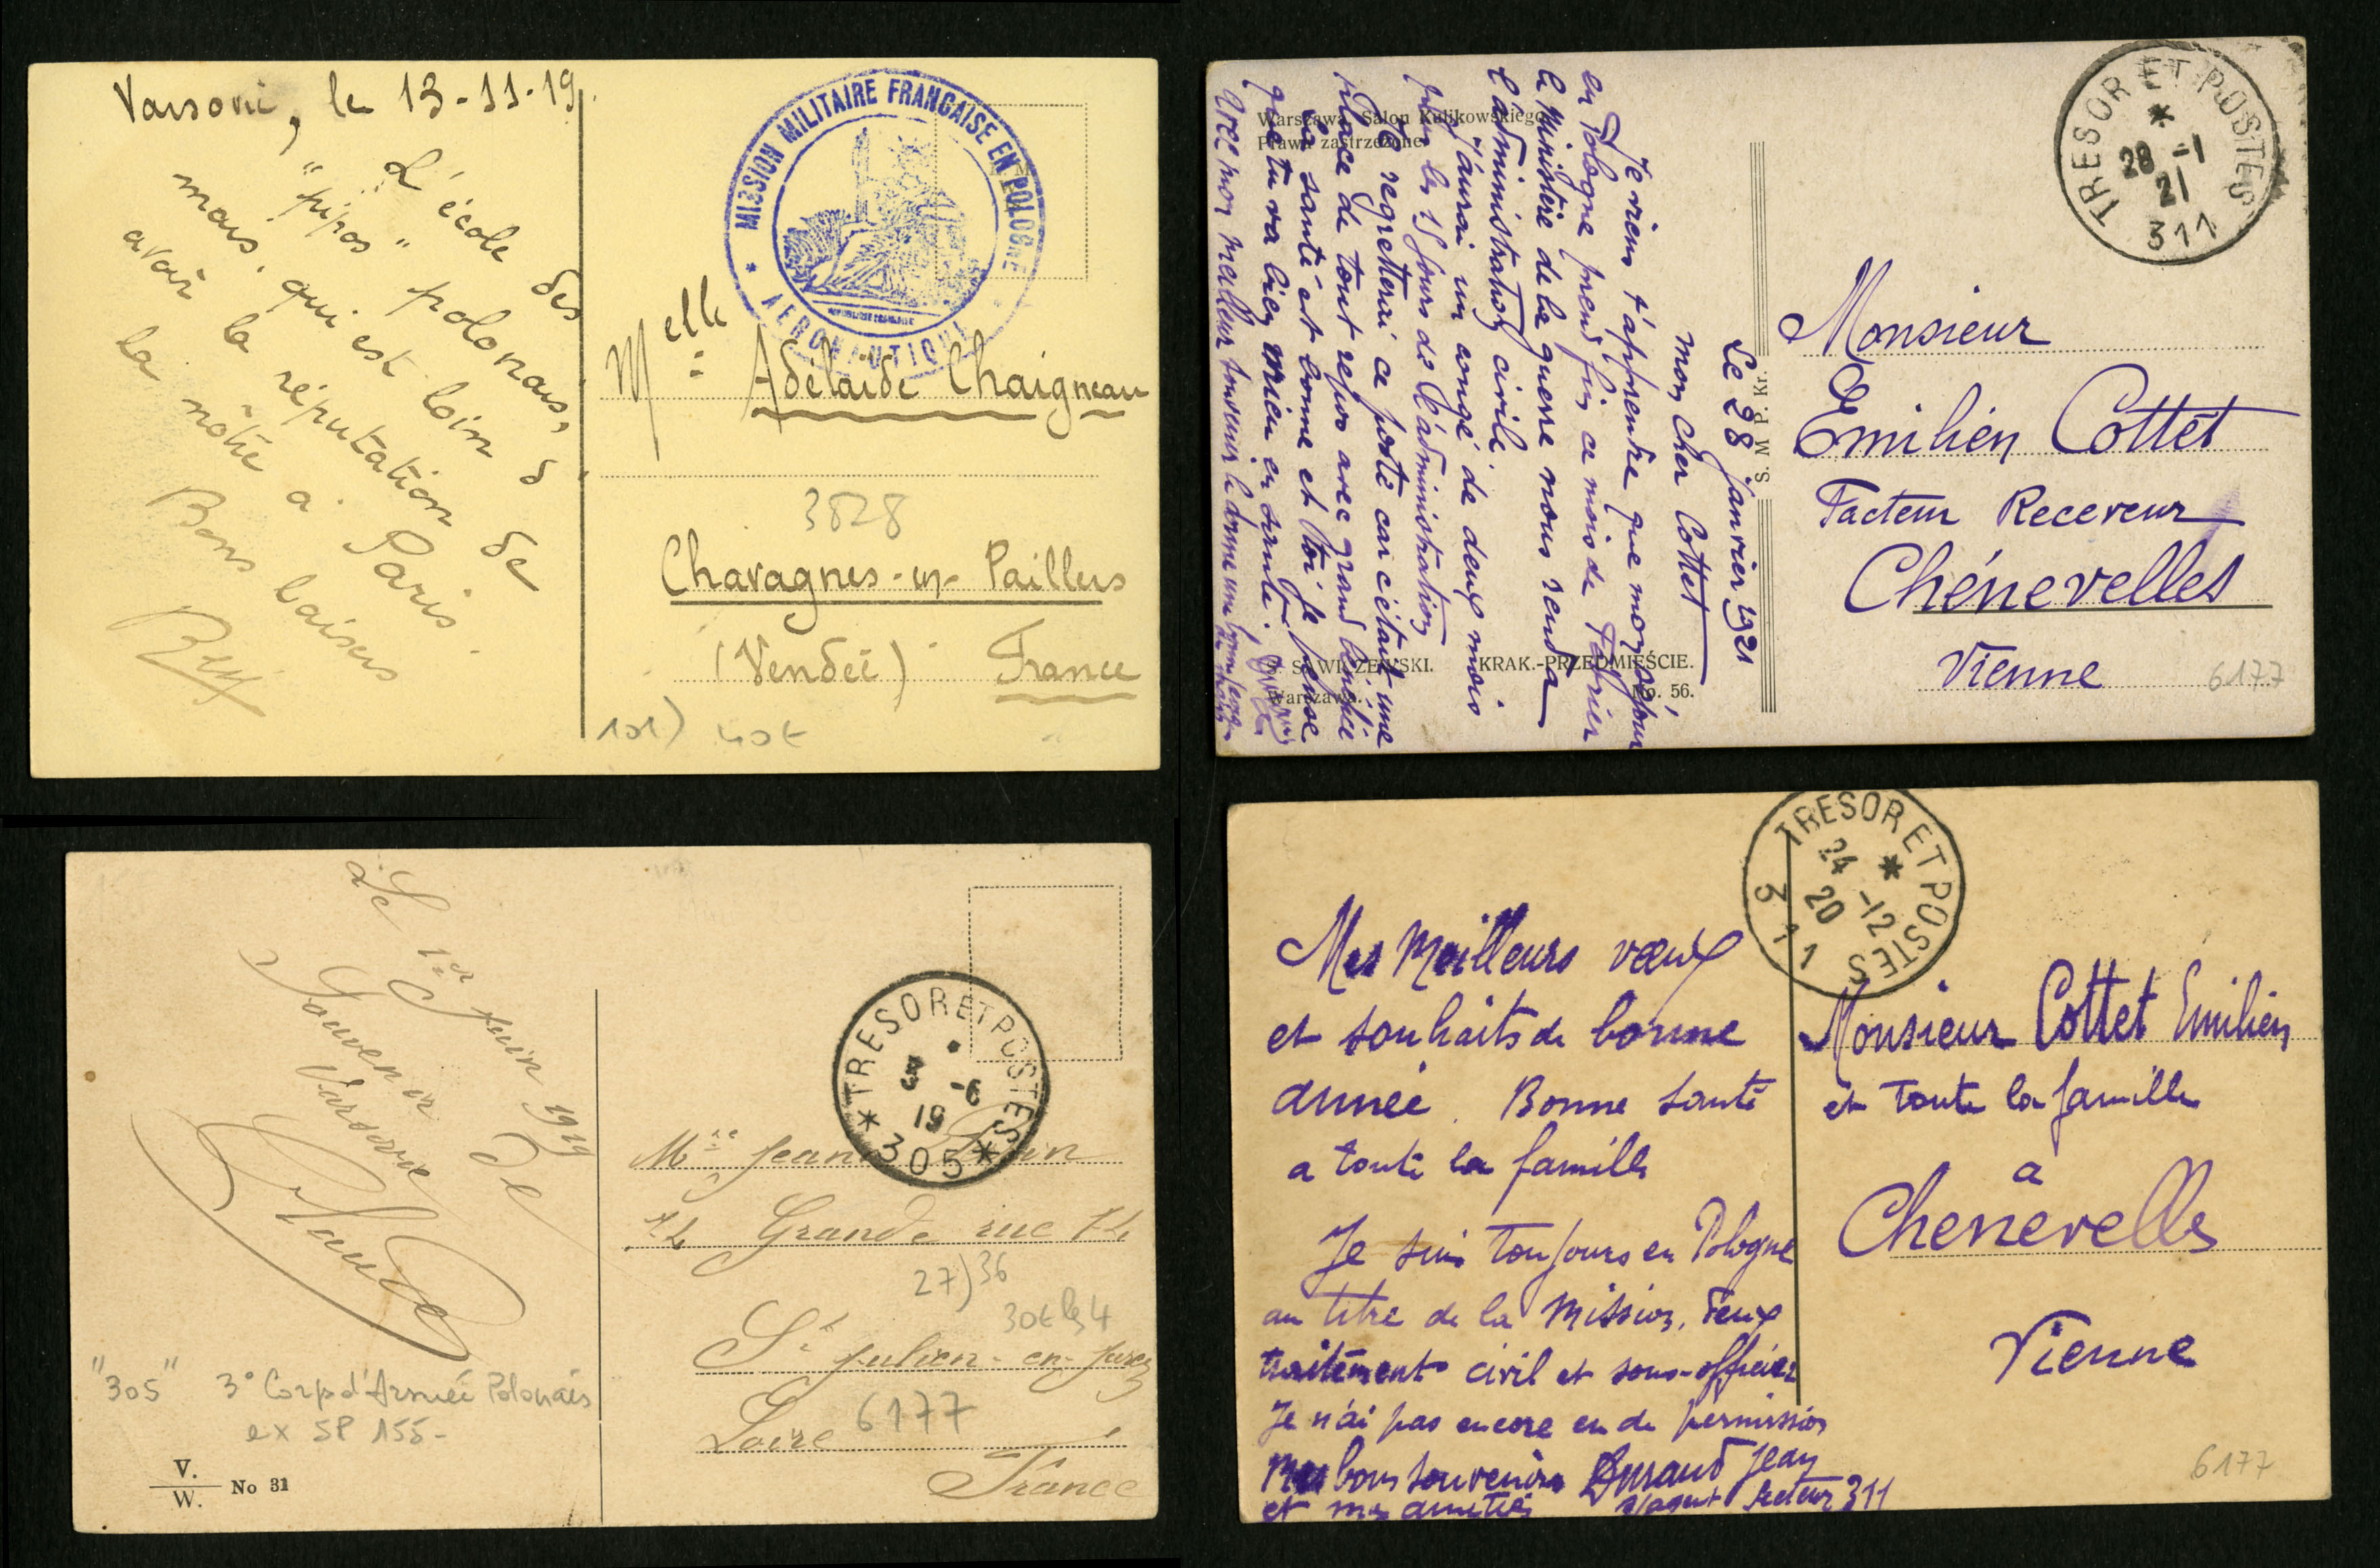 Varsovie, le 13-11-19.
L'école des
"pipos" polonais,
mais qui est loin d
avoir la réputation de
la nôtre à Paris.
Bons baisers
MISSION MILITAIRE FRANÇAISE EN POLOGNE
* AERONAUTIQUE *
REPUBLIQUE FRANÇAISE
Melle Adélaïde Chaigneau
3828
Chavagnes-en-Paillers
(Vendée) France
101) 40€
Warszawa, Salon Kulikowskiego
Prawa zastrzeżone
S. M. P. Kr.
KRAK.-PRZEDMIEŚCIE.
Warszawa. No. 56.
Le 28 janvier 1921
Mon cher Cottet
Je viens t'apprendre que mon séjour
en Pologne prend fin ce mois de Février
le Ministère de la guerre nous rend a
l'administration civile
J'aurai un congé de deux mois
plus les 15 jours de l'administration
Je regretterai ce poste car c'était une
place de tout repos avec grand bénéfice
La santé est bonne et toi je pense
que tu va bien mieux en santé.
Avec mon meilleur souvenir je donne une bonne
TRESOR ET POSTES
* 28 -1
21
311
Monsieur
Emilien Cottet
Facteur Receveur
Chénevelles
Vienne
6177
Le 1er Juin 1919
Souvenir de
Varsovie
"305" 3° Corp d'Armée Polonais
ex SP 155-
V.
W. No 31
TRESOR ET POSTES
3 -6
19
* 305 *
Mlle Jeanne
72 Grande rue 72
27) 36
30€ les 4
St Julien-en-Jarez
Loire 6177
France
TRESOR ET POSTES
24 * -12
20
311
Mes Meilleurs vœux
et souhaits de bonne
année. Bonne santé
a toute la famille
Je suis toujours en Pologne
au titre de la Mission. Deux
traitements civil et sous-officier
Je n'ai pas encore eu de permission
Mes bons souvenirs Durand Jean
et mes amitiés s/agent secteur 311
Monsieur Cottet Emilien
et toute la famille
a
Chenevelles
Vienne
6177